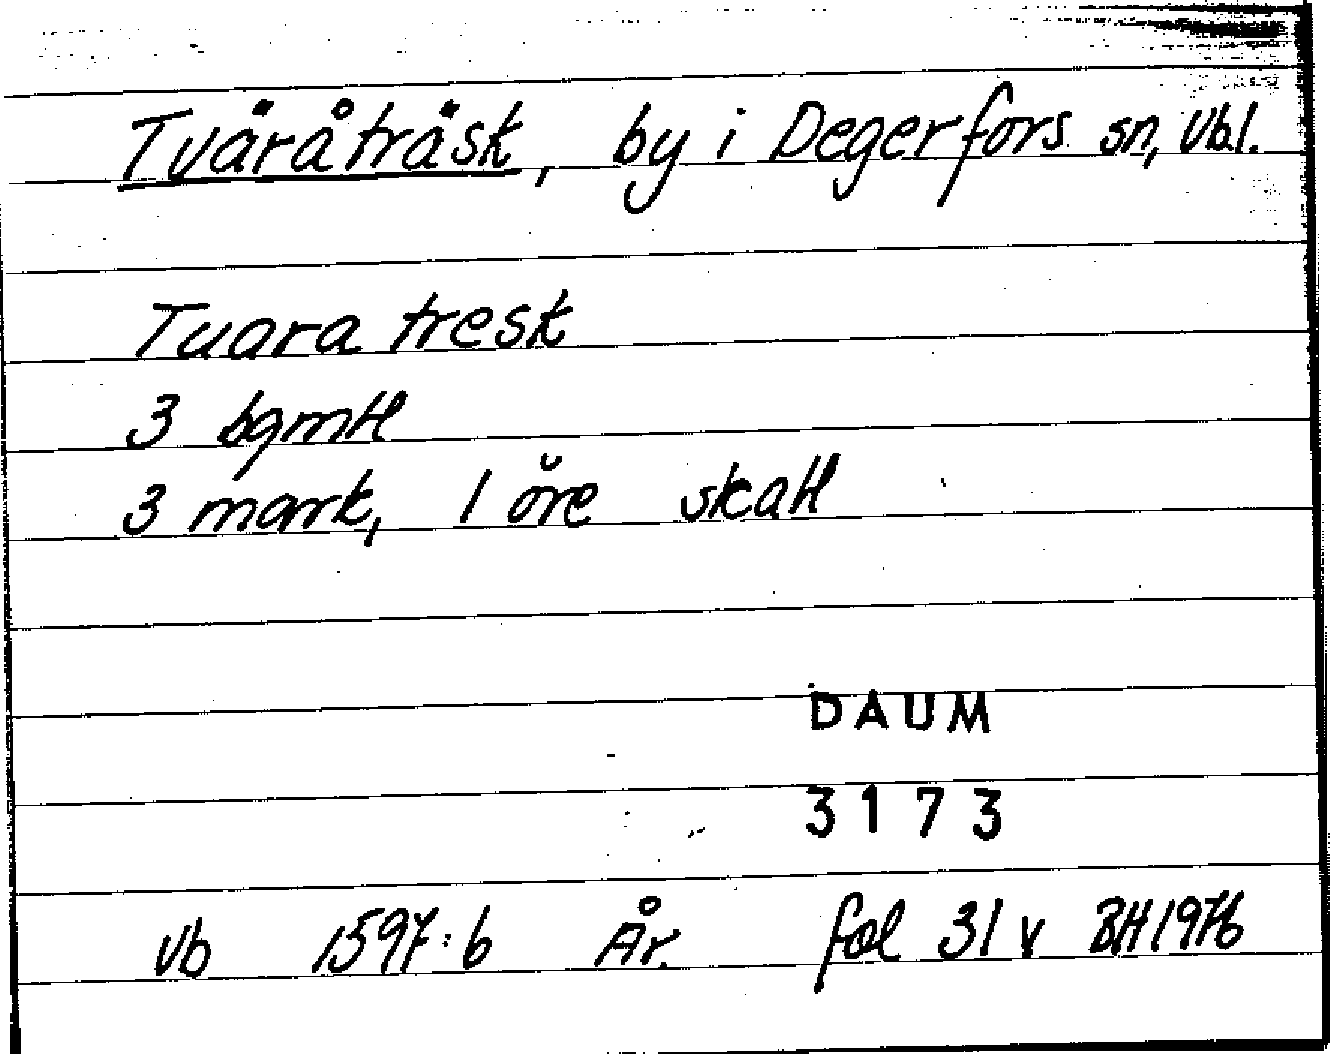 Tväråträsk, by i Degerfors sn, Vbl.
Tuara tresk
3 bgmtl
3 mark, 1 öre skatt
DAUM
3173
Vb 1597:6 År. fol 31 v BH 1976